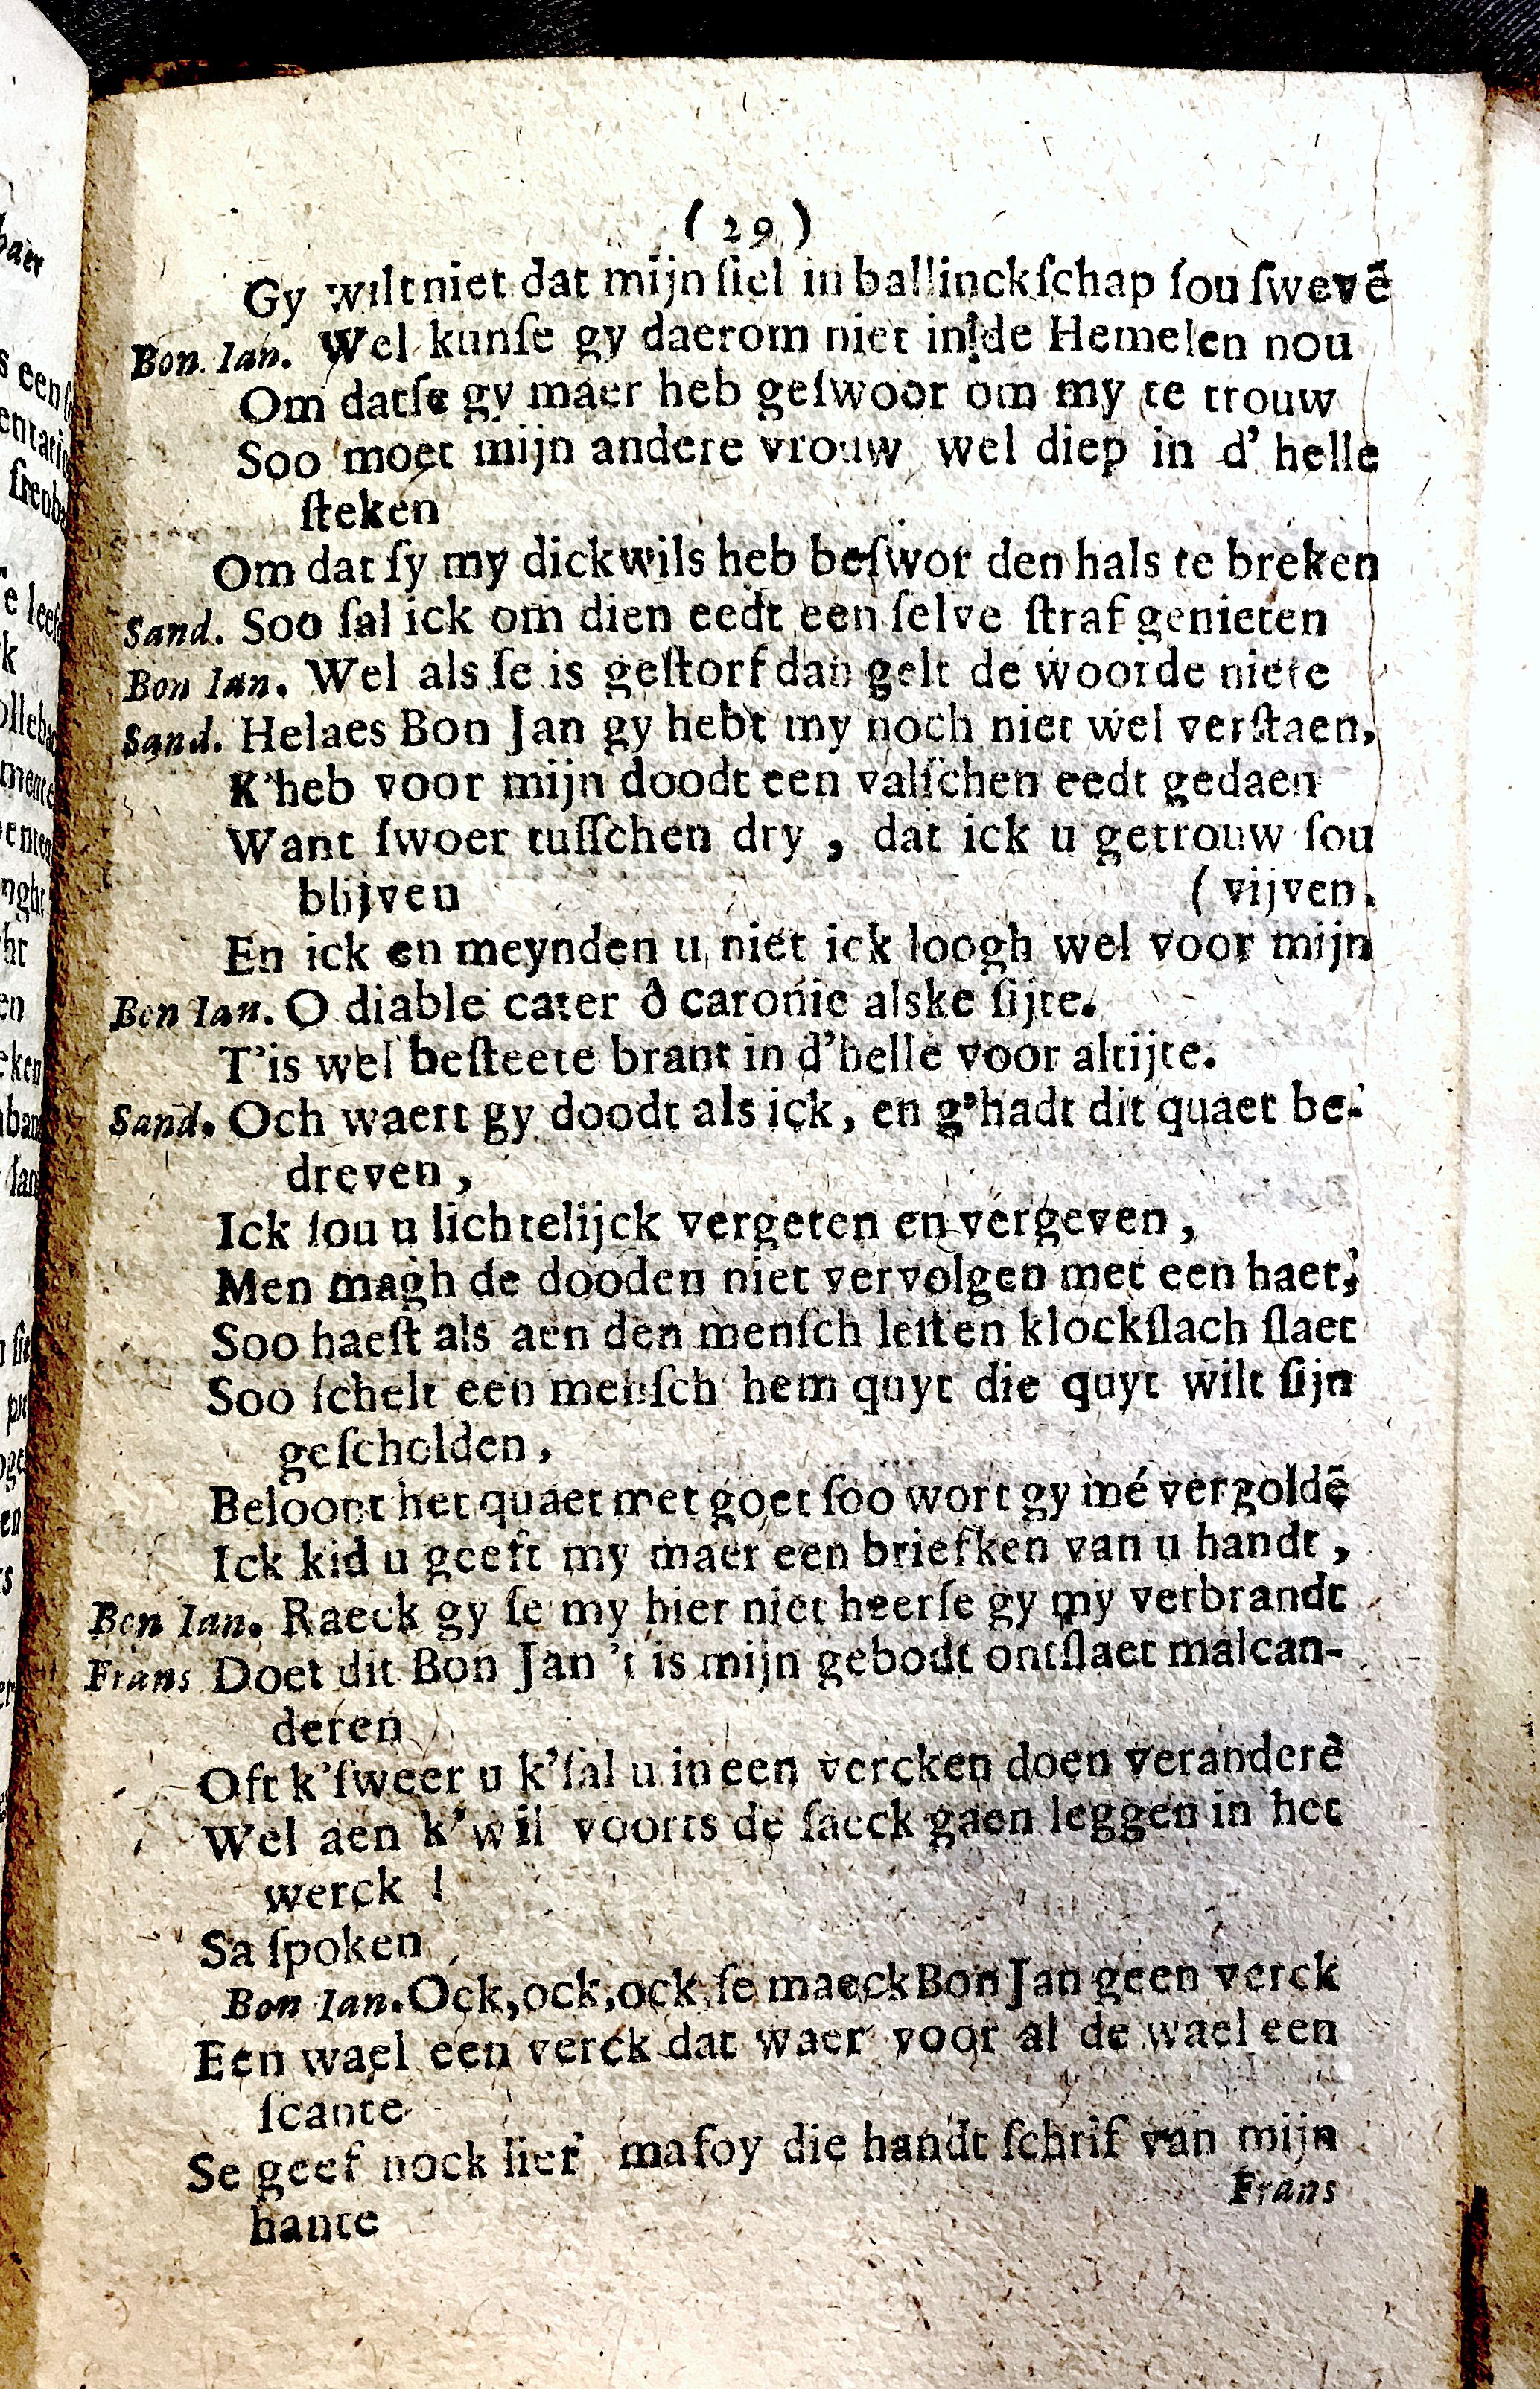 ( 29 )
Gy wilt niet dat mijn ſiel in ballinckſchap ſou ſwevē
Bon. Ian. Wel kunſe gy daerom niet in de Hemelen nou
Om datſe gy maer heb geſwoor om my te trouw
Soo moet mijn andere vrouw wel diep in d' helle
ſteken
Om dat ſy my dickwils heb beſwor den hals te breken
Sand. Soo ſal ick om dien eedt een ſelve ſtraf genieten
Bon Ian. Wel als ſe is geſtorf dan gelt de woorde niete
Sand. Helaes Bon Jan gy hebt my noch niet wel verſtaen,
K'heb voor mijn doodt een valſchen eedt gedaen
Want ſwoer tuſſchen dry , dat ick u getrouw ſou
blijven ( vijven.
En ick en meynden u niet ick loogh wel voor mijn
Bon Ian. O diable cater ô caronie alske ſijte.
T'is wel beſteete brant in d'helle voor altijte.
Sand. Och waert gy doodt als ick, en g'hadt dit quaet be-
dreven ,
Ick ſou u lichtelijck vergeten en vergeven ,
Men magh de dooden niet vervolgen met een haet,
Soo haeſt als aen den menſch leſten klockſlach ſlaet
Soo ſchelt een menſch hem quyt die quyt wilt ſijn
geſcholden ,
Beloont het quaet met goet ſoo wort gy mé vergoldē
Ick kid u geeft my maer een briefken van u handt ,
Bon Ian. Raeck gy ſe my hier niet heerſe gy my verbrandt
Frans Doet dit Bon Jan 't is mijn gebodt ontſlaet malcan-
deren
Oft k'ſweer u k'ſal u in een vercken doen veranderē
Wel aen k'wil voorts de ſaeck gaen leggen in het
werck !
Sa ſpoken
Bon Ian. Ock, ock, ock, ſe maeck Bon Jan geen verck
Een wael een verck dat waer voor al de wael een
ſcante
Se geef nock lier mafoy die handt ſchrif van mijn
hante
Frans